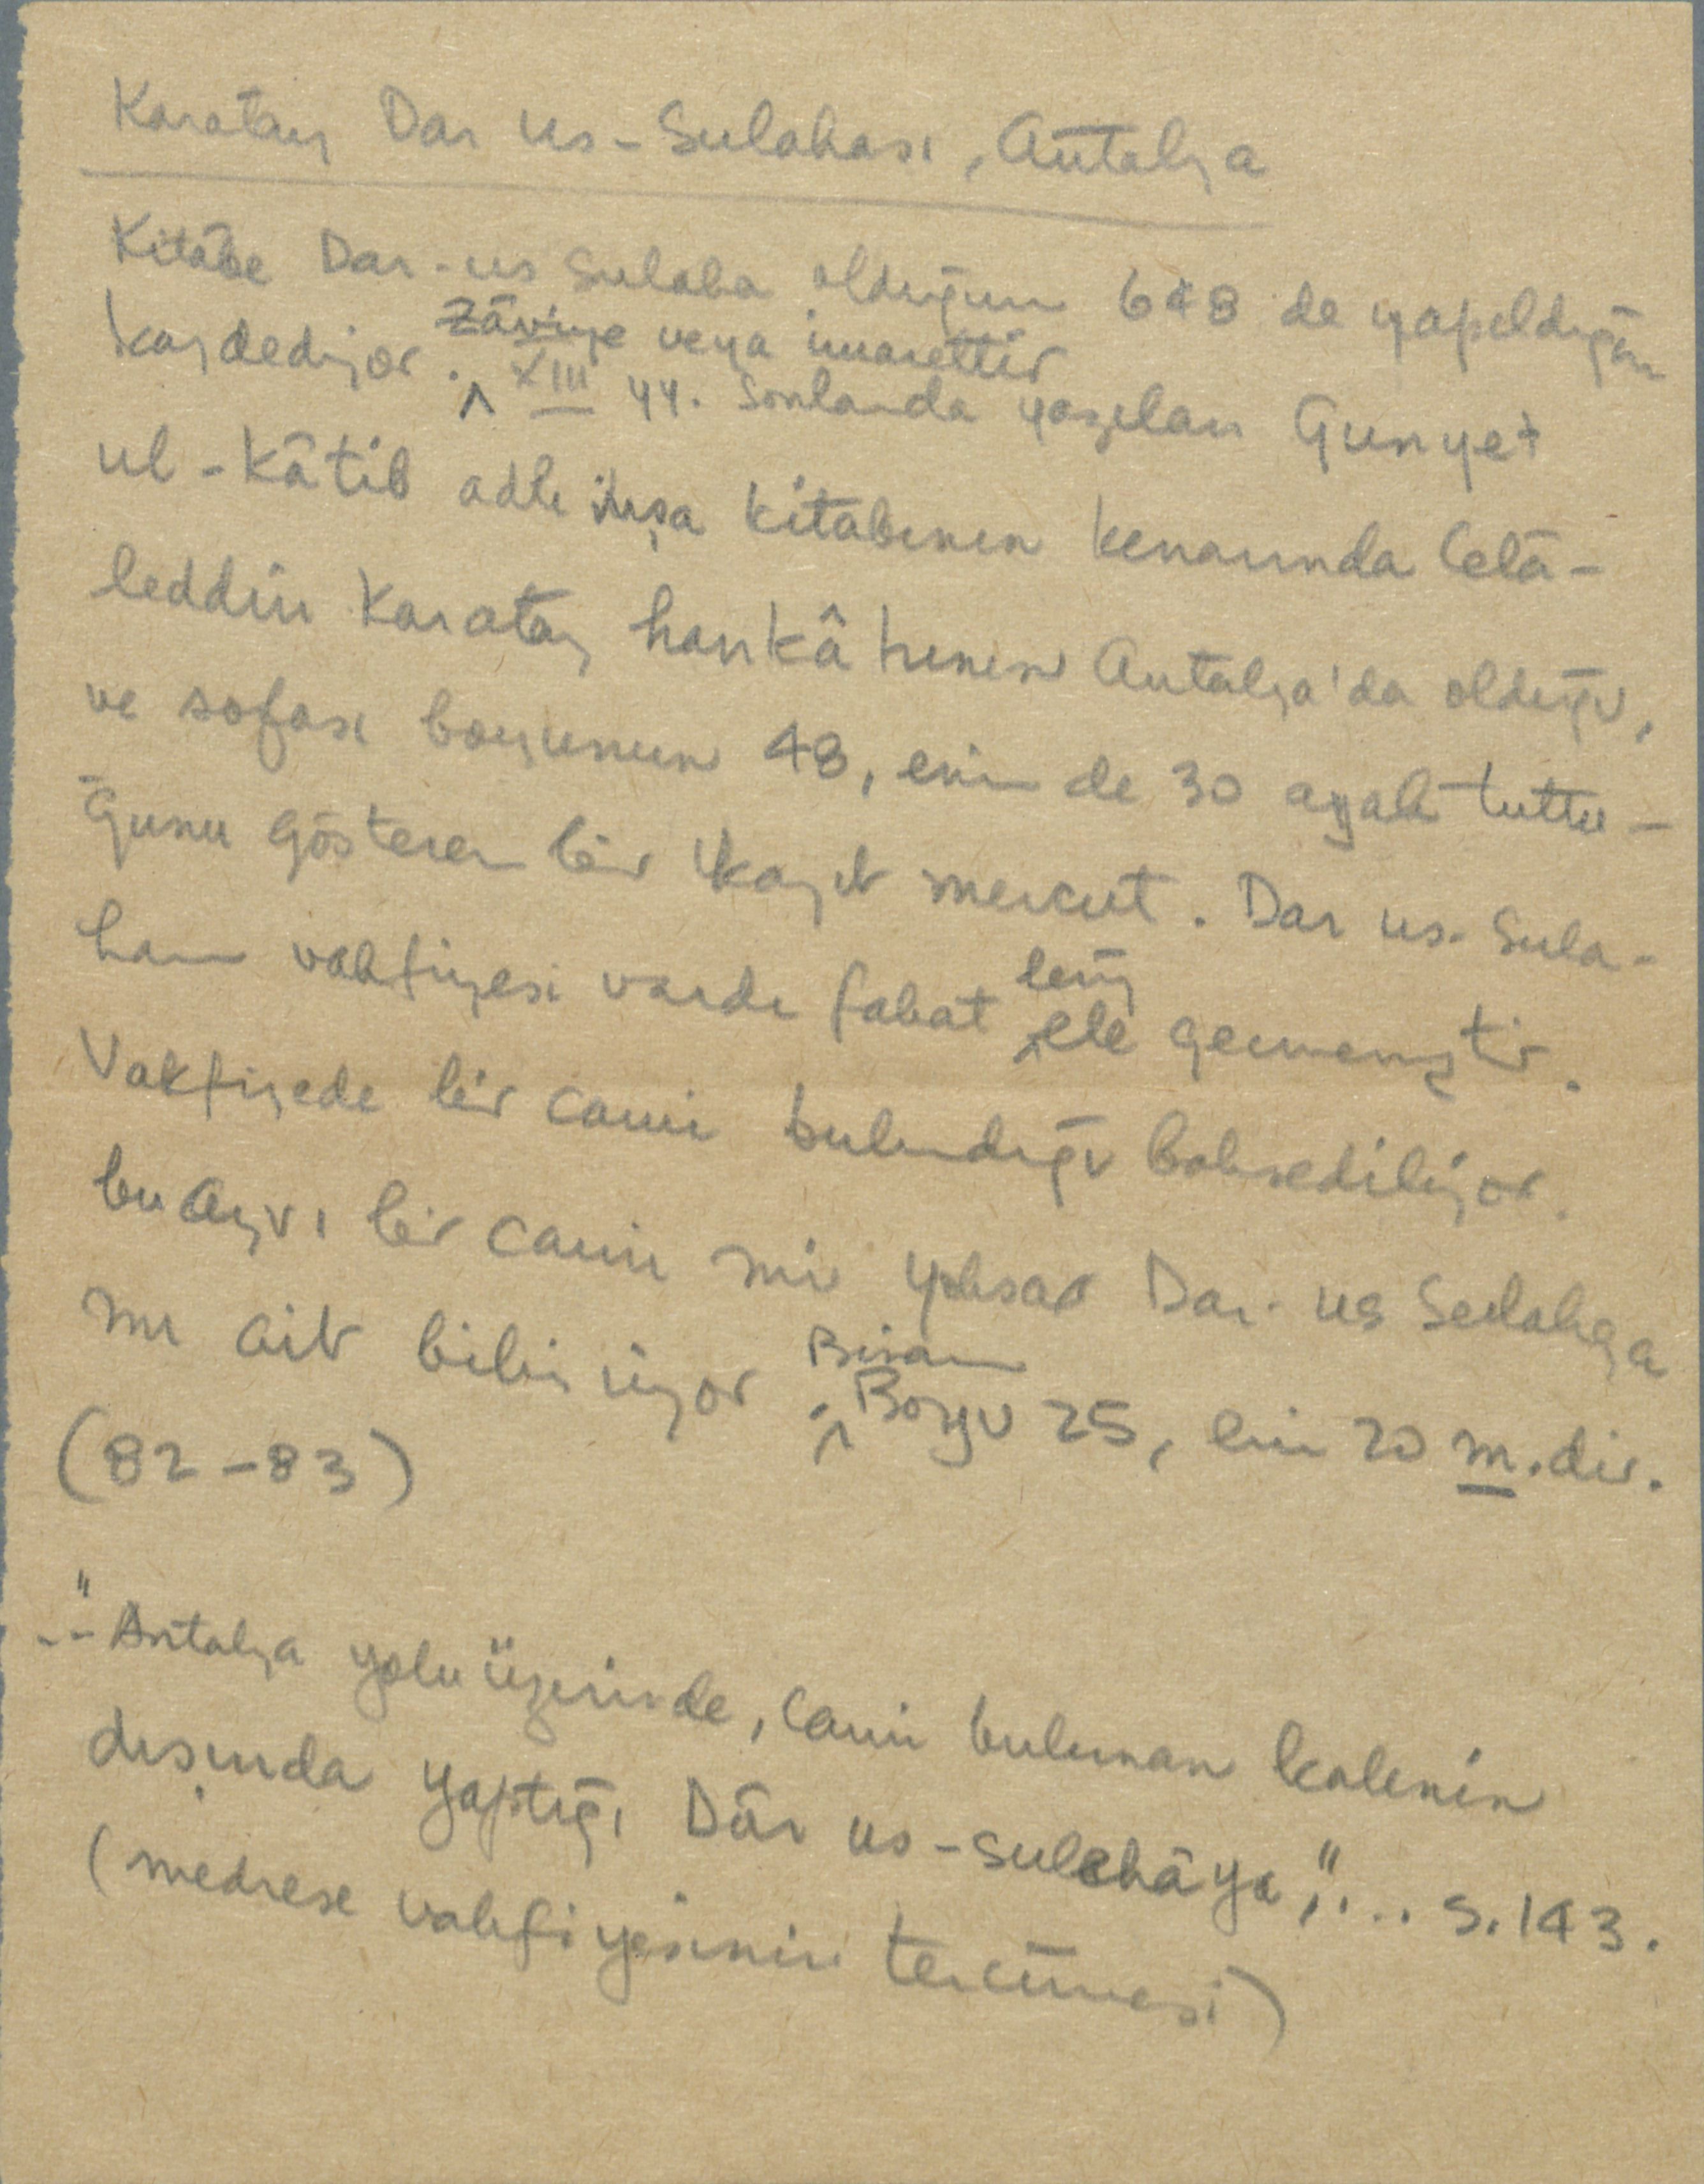 Karatay Dar us-Sulahası, Antalya
Kitâbe Dar-us Sulaha olduğunu 648 de yapıldığını
Zâviye veya imarettir
kaydediyor. XIII yy. Sonlarıda yazılan Gunyet
ul-Kâtib adlı inşa kitabının kenarında Celâ-
leddin Karatay hankâhının Antalya'da olduğu,
ve sofası boyunun 48, enin de 30 ayak tuttu-
ğunu gösteren bir kayıt mevcut. Dar us-Sula-
hanı vakfiyesi vardı fakat ele geçmemiştir.
Vakfiyede bir cami bulunduğu bahsediliyor.
bu ayrı bir cami mi yoksa Dar-us Sulahaya
Binanı
mı ait bilin iyor. Boyu 25, eni 20 m.dir.
(82-83)
"-- Antalya yolu üzerinde, Cami bulunan kalenin
dışında yaptığı Dâr us-sulahâya,"... s.143.
(medrese vakfiyesinin tercümesi)